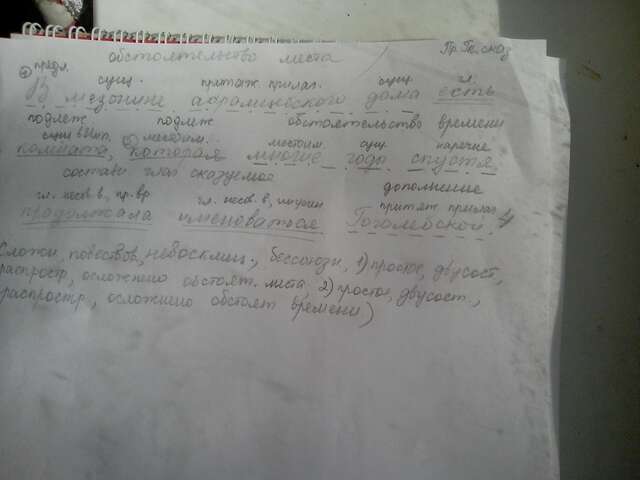 обстоятельство места Пр. Гл. сказ
предл. сущ. притяж прилаг. сущ гл.
1) В мезонине абрамцевского дома есть
подлеж подлеж обстоятельство времени
сущ в И.п. 2) местоим. местоим. сущ. наречие
комната, которая многие годы спустя,
составн глаг сказуемое дополнение
гл. несов. в, пр. вр гл. несов. в, инфин притяж прилаг
продолжала именоваться Гоголевской.
Сложн, повествов, невосклиц., бессоюзн, 1) простое, двусост,
распростр, осложнено обстоят. места, 2) простое, двусост.,
распростр, осложнено обстоят времени)